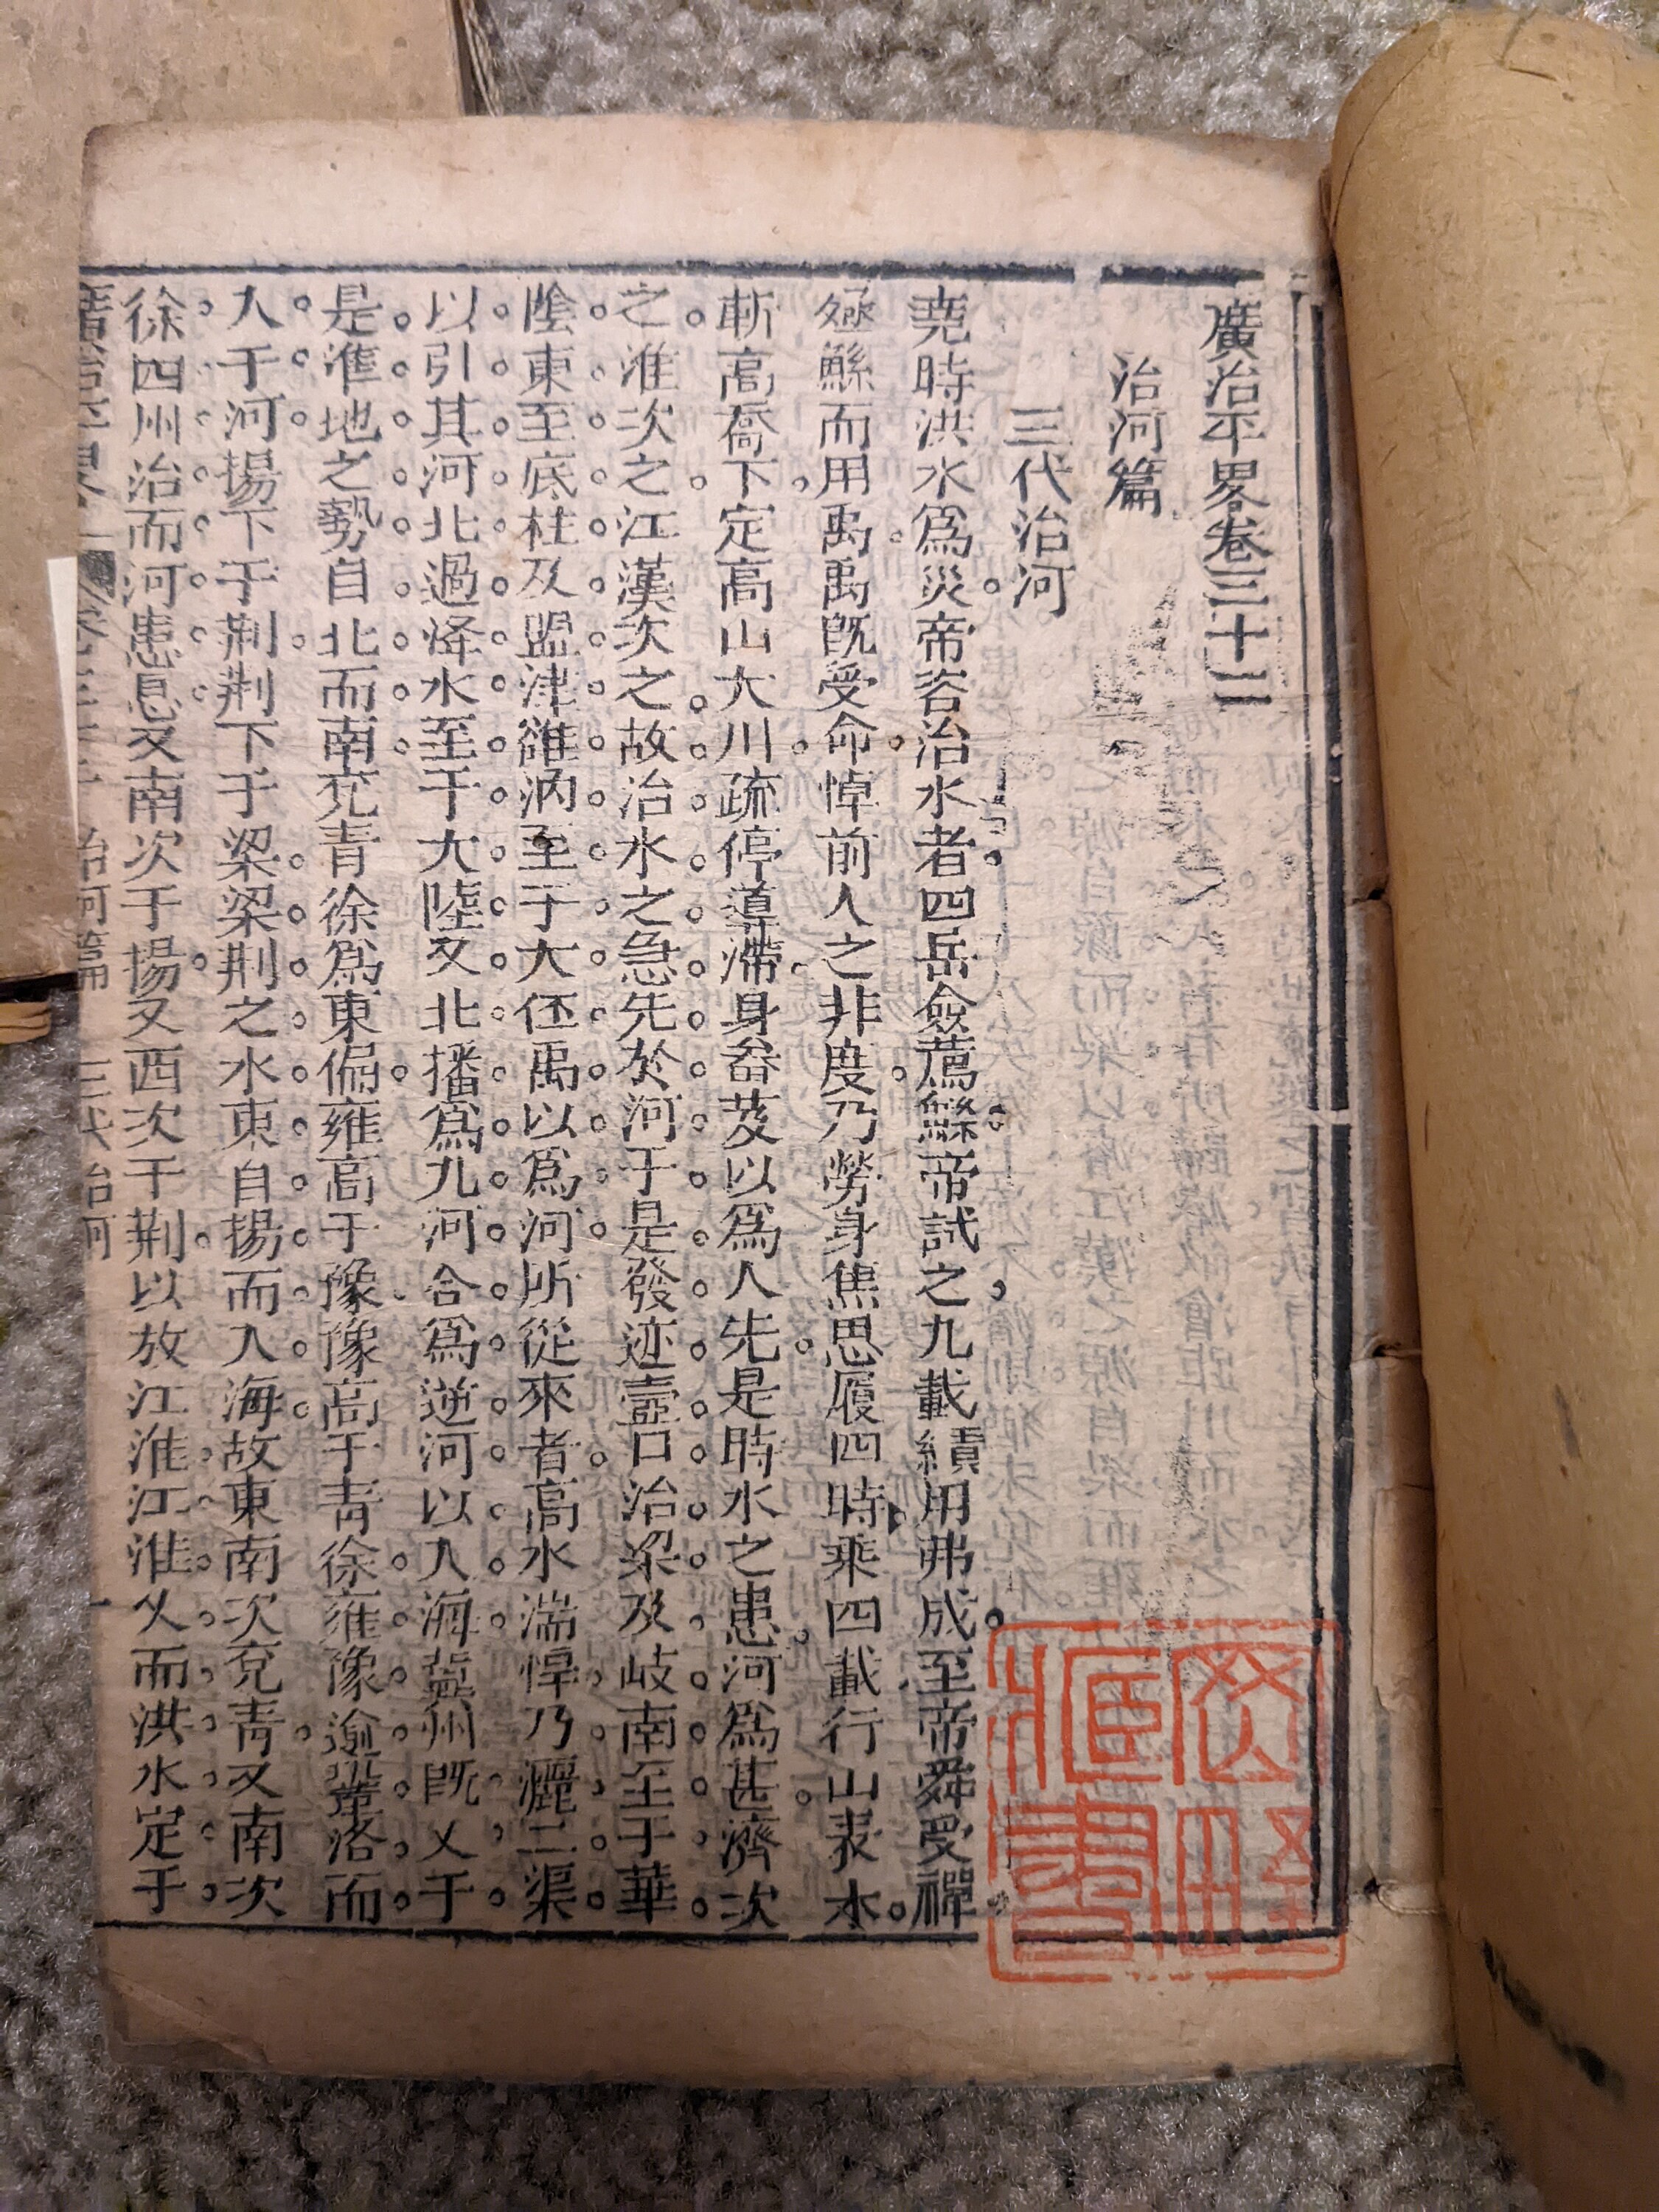 廣治平畧卷三十三
治河篇
三代治河
堯時洪水爲災帝咨治水者四岳僉薦鯀帝試之九載績用弗成至帝舜受禪
殛鯀而用禹禹旣受命悼前人之非度乃勞身焦思履四時乘四載行山表木
斬高喬下定高山大川疏停導滯身畚芟以爲人先是時水之患河爲甚濟次
之淮次之江漢次之故治水之急先於河于是發迹壺口治梁及岐南至于華
陰東至底柱及盟津雒汭至于大伾禹以爲河所從來者高水湍悍乃灑二渠
以引其河北過洚水至于大陸又北播爲九河合爲逆河以入海冀州旣乂于
是準地之勢自北而南兗青徐爲東偏雍高于豫豫高于青徐雍豫逾鞏洛而
入于河揚下于荆荆下于梁梁荆之水東自揚而入海故東南次兗青又南次
徐四州治而河患息又南次于揚又西次于荆以放江淮江淮乂而洪水定于
廣治平畧 卷三十三 治河篇 三代治河 一
藏書